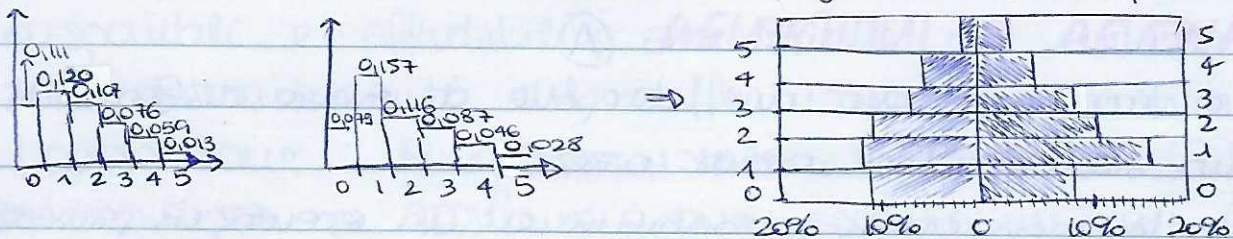 0,111
0,120
0,107
0,076
0,059
0,013
0 1 2 3 4 5
0,079
0,157
0,116
0,087
0,046
0,028
0 1 2 3 4 5
⇒
5 5
4 4
3 3
2 2
1 1
0 0
20% 10% 0 10% 20%